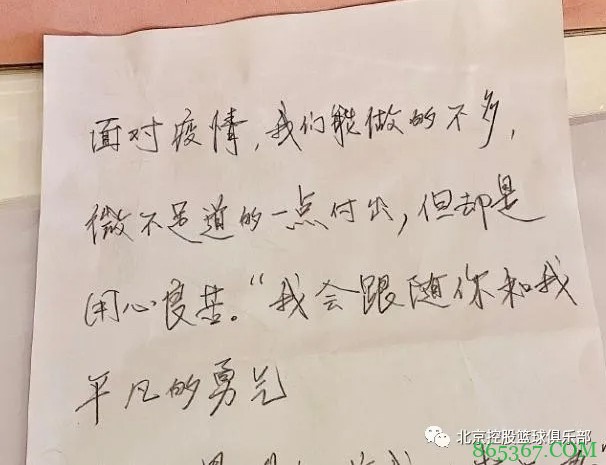 面对疫情,我们能做的不多,
微不足道的一点付出,但却是
用心良苦。“我会跟随你和我
平凡的勇气
北京控股篮球俱乐部
865367.COM